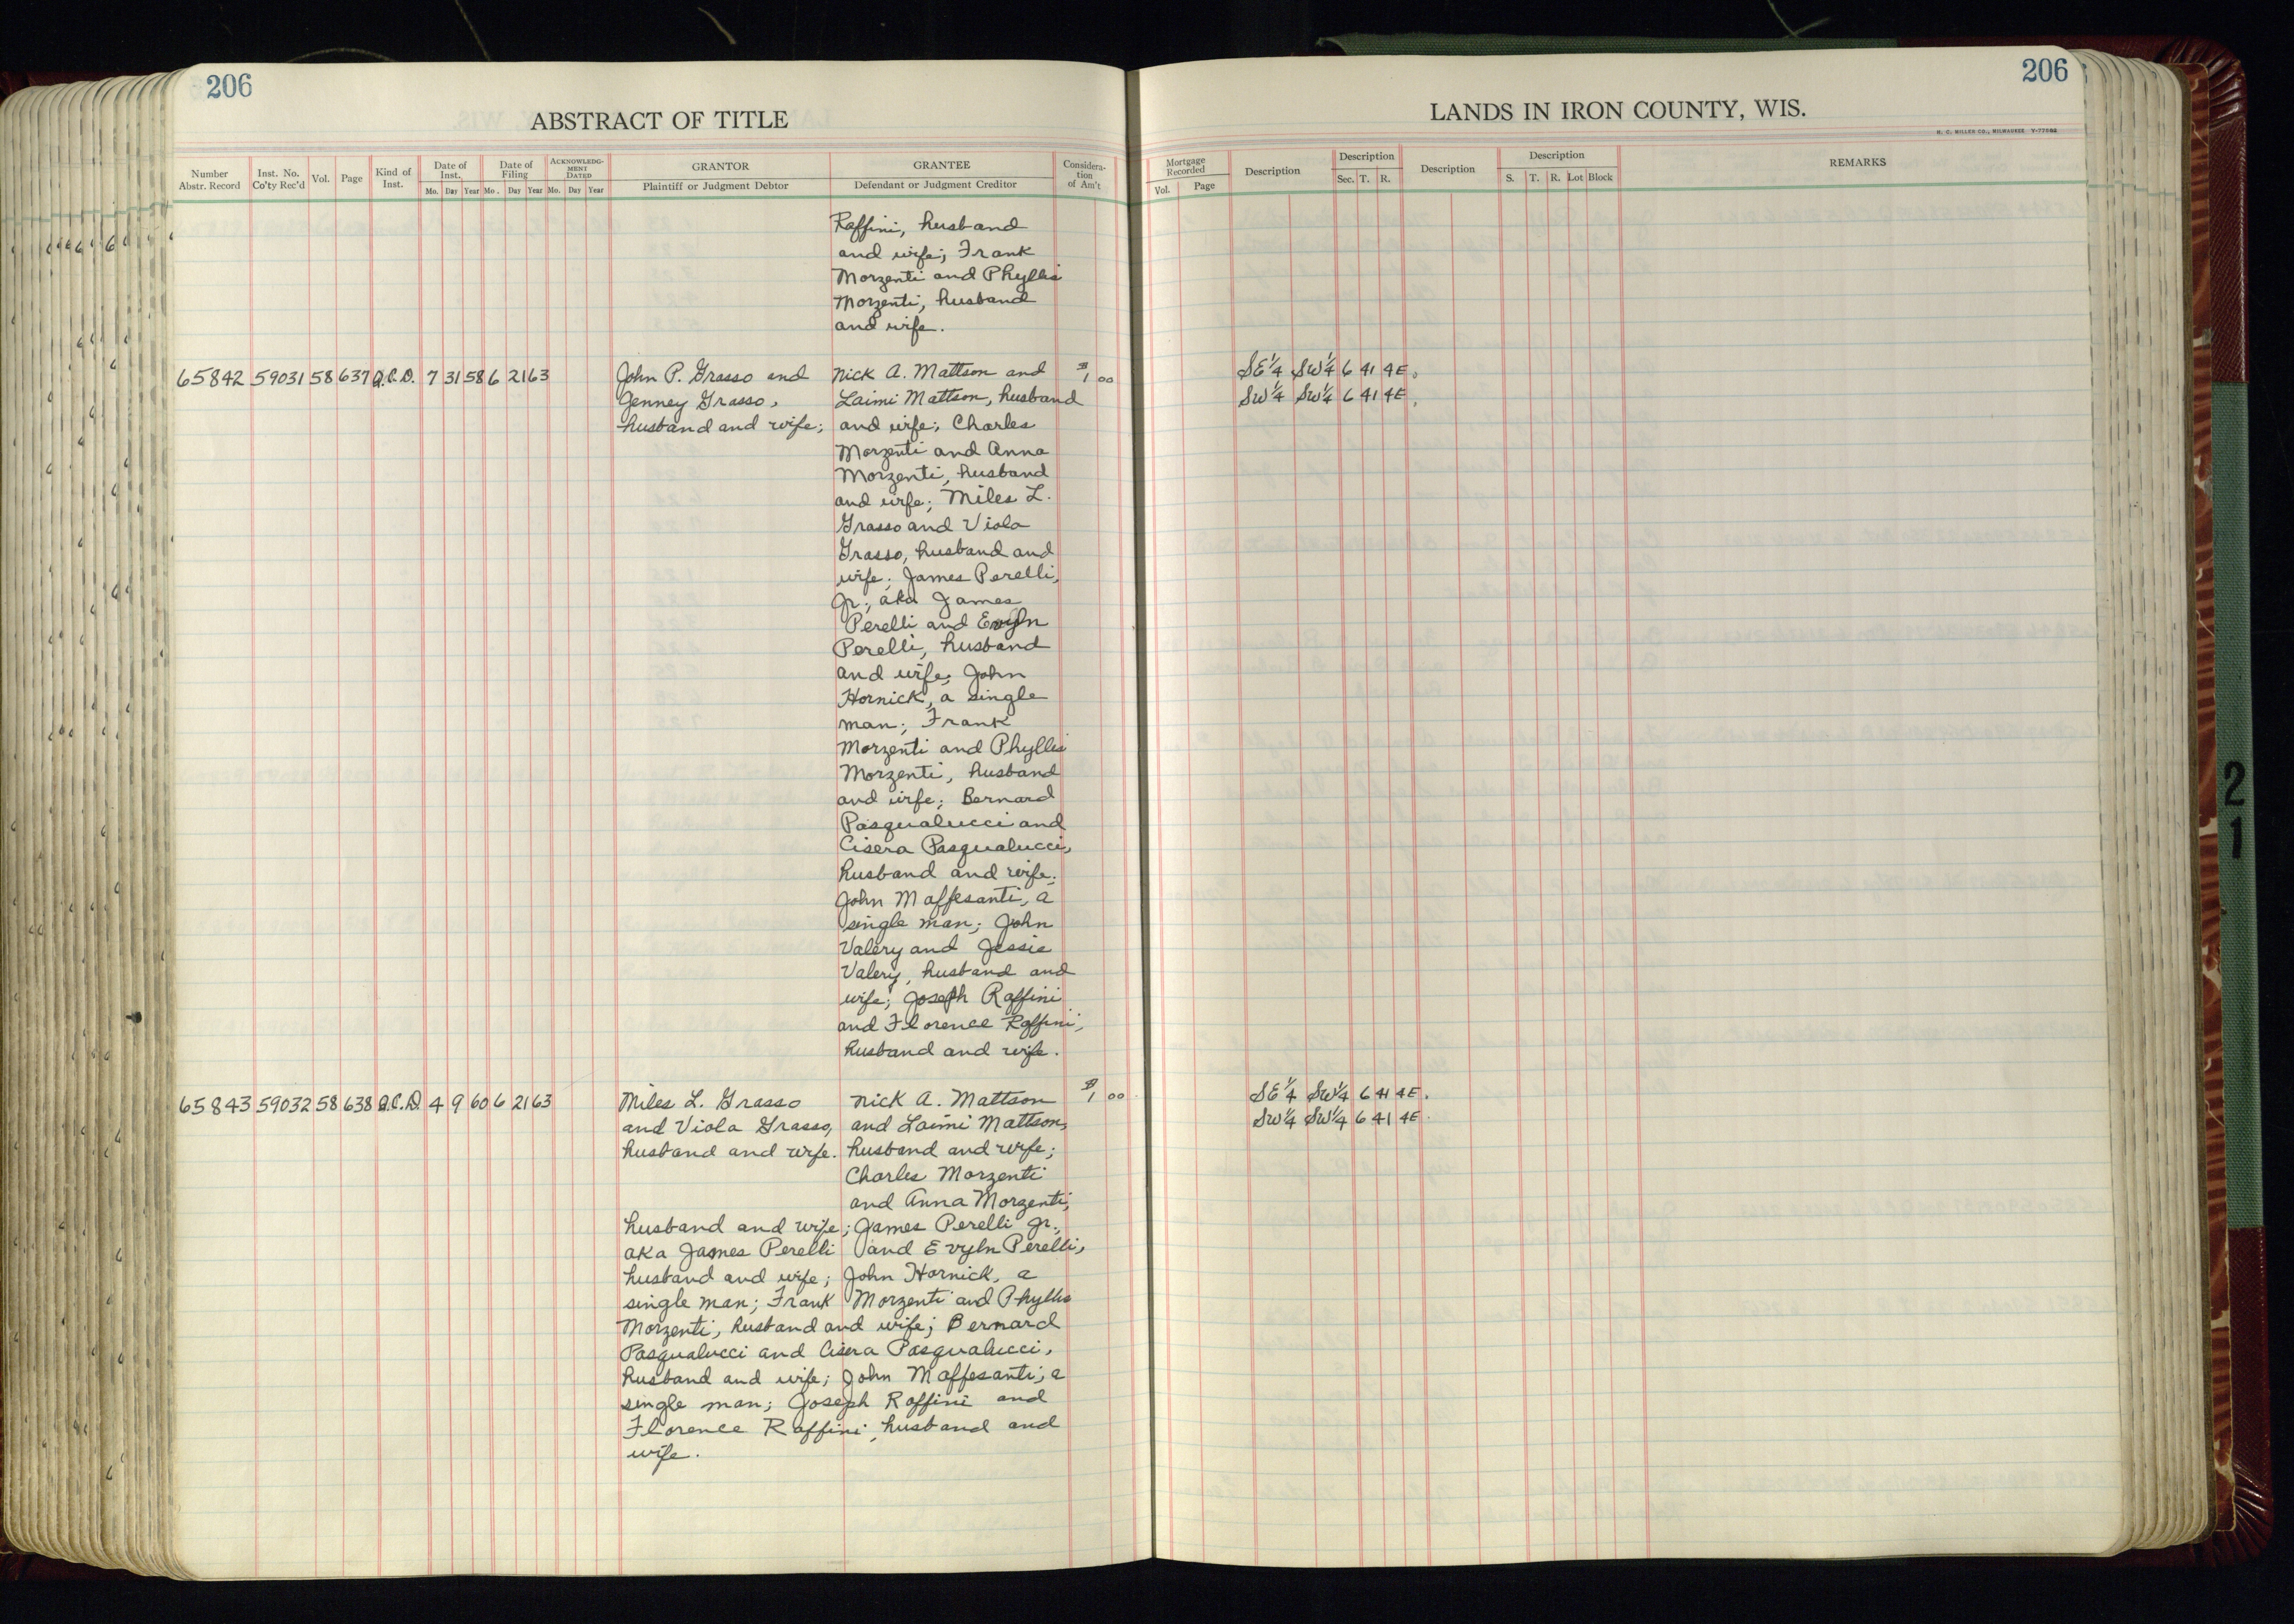 206
206
ABSTRACT OF TITLE
LANDS IN IRON COUNTY, WIS.
H. C. MILLER CO., MILWAUKEE V-77982
Number Abstr. Record
Inst. No. Co'ty Rec'd
Vol.
Page
Kind of Inst.
Date of Inst.
Mo. Day Year
Date of Filing
Mo. Day Year
ACKNOWLEDGMENT DATED
Mo. Day Year
GRANTOR
Plaintiff or Judgment Debtor
GRANTEE
Defendant or Judgment Creditor
Consideration of Am't
Mortgage Recorded
Vol. Page
Description
Description
Sec. T. R.
Description
Description
S. T. R. Lot Block
REMARKS
Raffini, husband
and wife; Frank
Morzenti and Phyllis
Morzenti, husband
and wife.
65842 59031 58 637 Q.C.D. 7 31 58 6 21 63 John P. Grasso and Nick A. Mattson and $1 00 SE 1/4 SW 1/4 6 41 4E.
Jenney Grasso, Laimi Mattson, husband SW 1/4 SW 1/4 6 41 4E.
husband and wife; and wife; Charles
Morzenti and Anna
Morzenti, husband
and wife; Miles L.
Grasso and Viola
Grasso, husband and
wife; James Perelli,
Jr., aka James
Perelli and Evyln
Perelli, husband
and wife; John
Hornick, a single
man; Frank
Morzenti and Phyllis
Morzenti, husband
and wife; Bernard
Pasqualucci and
Cisera Pasqualucci,
husband and wife;
John Maffesanti, a
single man; John
Valery and Jessie
Valery, husband and
wife; Joseph Raffini
and Florence Raffini,
husband and wife.
65843 59032 58 638 Q.C.D. 4 9 60 6 21 63 Miles L. Grasso Nick A. Mattson $1 00 SE 1/4 SW 1/4 6 41 4E.
and Viola Grasso, and Laimi Mattson, SW 1/4 SW 1/4 6 41 4E.
husband and wife. husband and wife;
Charles Morzenti
and Anna Morzenti,
husband and wife; James Perelli Jr.,
aka James Perelli and Evyln Perelli,
husband and wife; John Hornick, a
single man; Frank Morzenti and Phyllis
Morzenti, husband and wife; Bernard
Pasqualucci and Cisera Pasqualucci,
husband and wife; John Maffesanti, a
single man; Joseph Raffini and
Florence Raffini, husband and
wife.
21